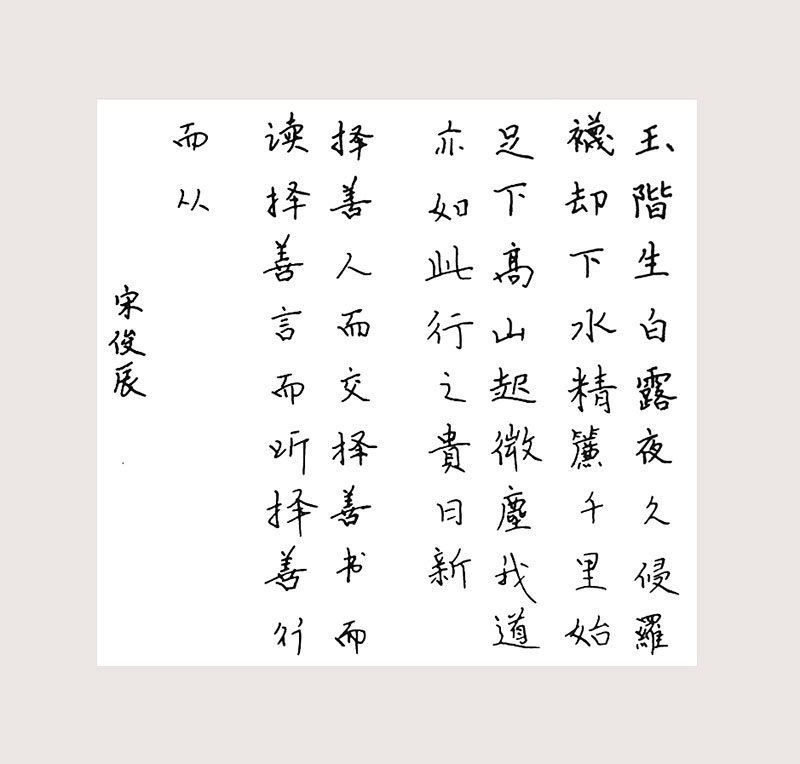 玉階生白露夜久侵羅
襪却下水精簾千里始
足下高山起微塵我道
亦如此行之貴日新
择善人而交择善书而
读择善言而听择善行
而从
宋俊辰